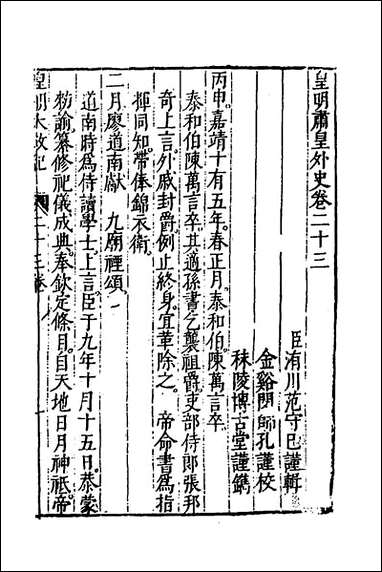 皇明肅皇外史卷二十三
臣洧川范守巳謹輯
金谿閔師孔謹校
秣陵博古堂謹鐫
丙申。嘉靖十有五年。春正月。泰和伯陳萬言卒
泰和伯陳萬言卒。其適孫書乞襲祖爵。吏部侍郎張邦
奇上言。外戚封爵。例止終身。宜革除之。 帝命書爲指
揮同知。帶俸錦衣衛。
二月廖道南獻 九廟禋頌
道南時爲侍讀學士上言。臣于九年十月十五日。恭蒙
勑諭。纂修祀儀成典。奉欽定條目。自天地日月神祇。帝
皇明大政記 二十三卷